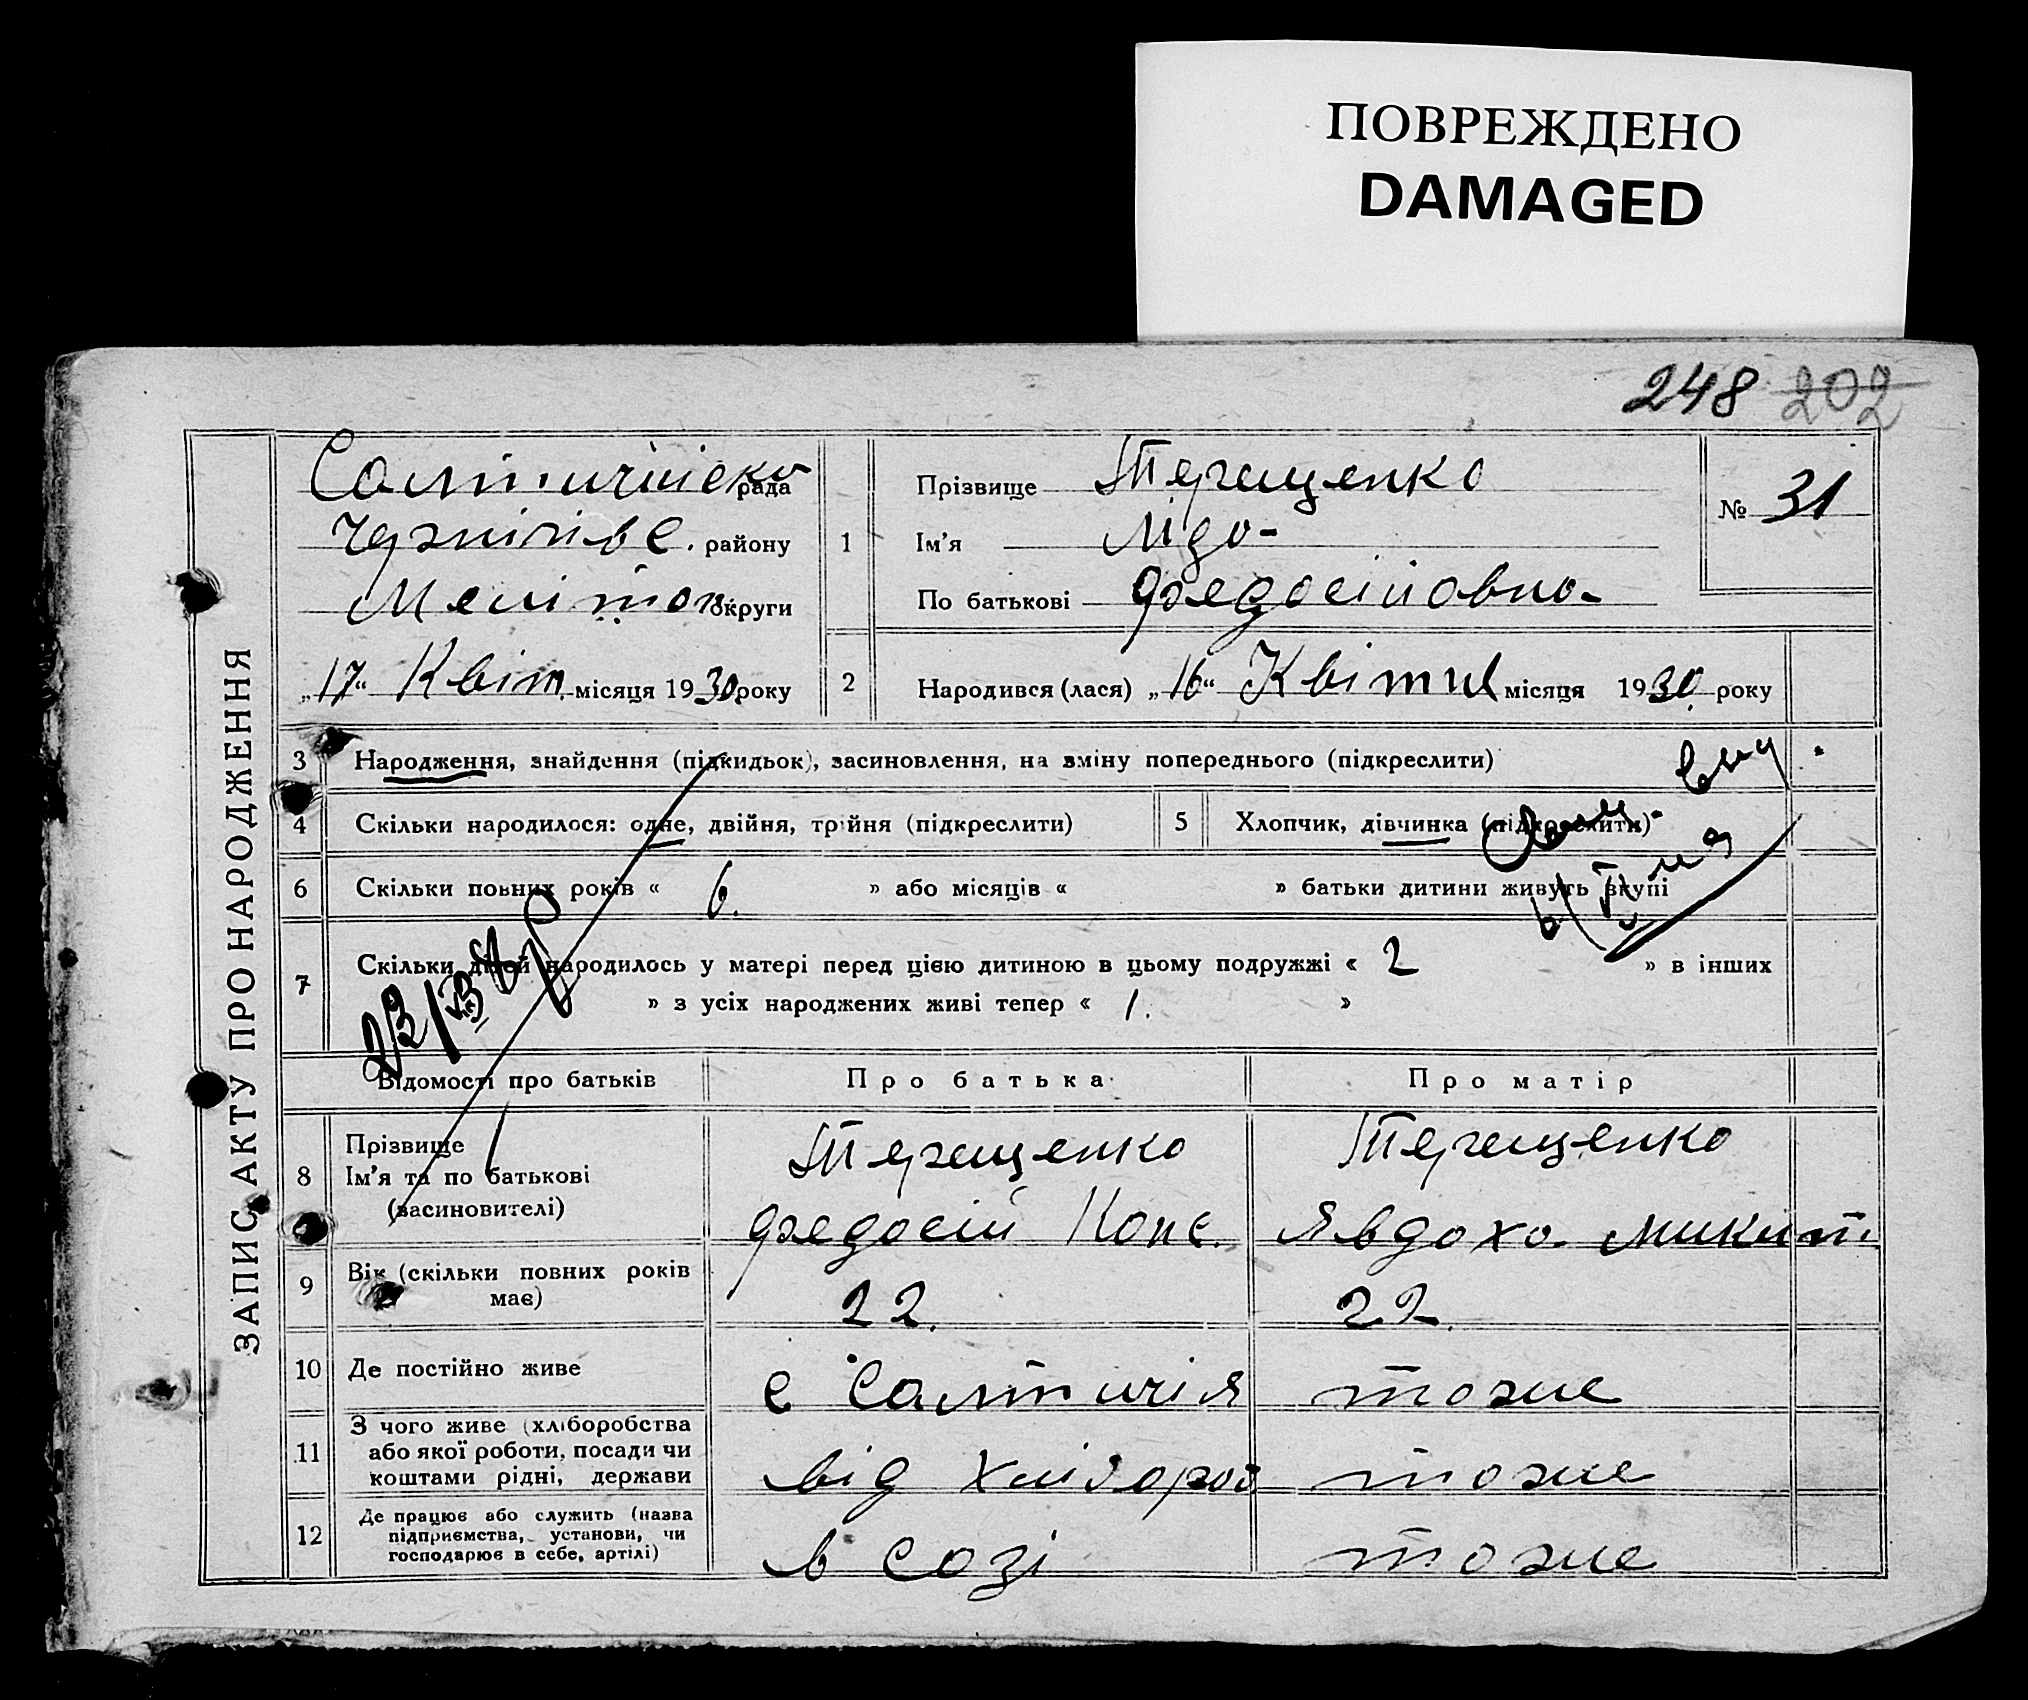 ПОВРЕЖДЕНО
DAMAGED
248 202
ЗАПИС АКТУ ПРО НАРОДЖЕННЯ
Салтичійска рада
Чернігівс. району
Мелітоп. округи
„17“ Квіт. місяця 1930 року
1
Прізвище Терещенко
Ім'я Ліда
По батькові Федосіївна
№ 31
2
Народився (лася) „16“ Квітня місяця 1930. року
3 Народження, знайдення (підкидьок), засиновлення, на зміну попереднього (підкреслити)
4 Скільки народилося: одне, двійня, трійня (підкреслити)
5 Хлопчик, дівчинка (підкреслити)
6 Скільки повних років « 6. » або місяців « » батьки дитини живуть вкупі
7 Скільки дітей народилось у матері перед цією дитиною в цьому подружжі « 2 » в інших
» з усіх народжених живі тепер « 1. »
Відомості про батьків Про батька Про матір
8 Прізвище
Ім'я та по батькові
(засиновителі)
Терещенко
Федосій Конс.
Терещенко
Явдоха Микит.
9 Вік (скільки повних років
має)
22. 22.
10 Де постійно живе с Салтичія тоже
11 З чого живе (хліборобства
або якої роботи, посади чи
коштами рідні, держави
від хлібороб тоже
12 Де працює або служить (назва
підприємства, установи, чи
господарює в себе, артілі)
в созі тоже